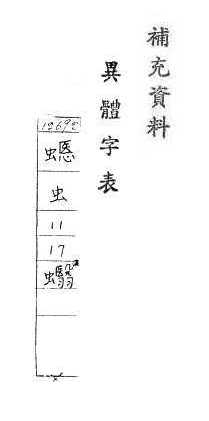 補充資料
異體字表
虫
11
17
蠮